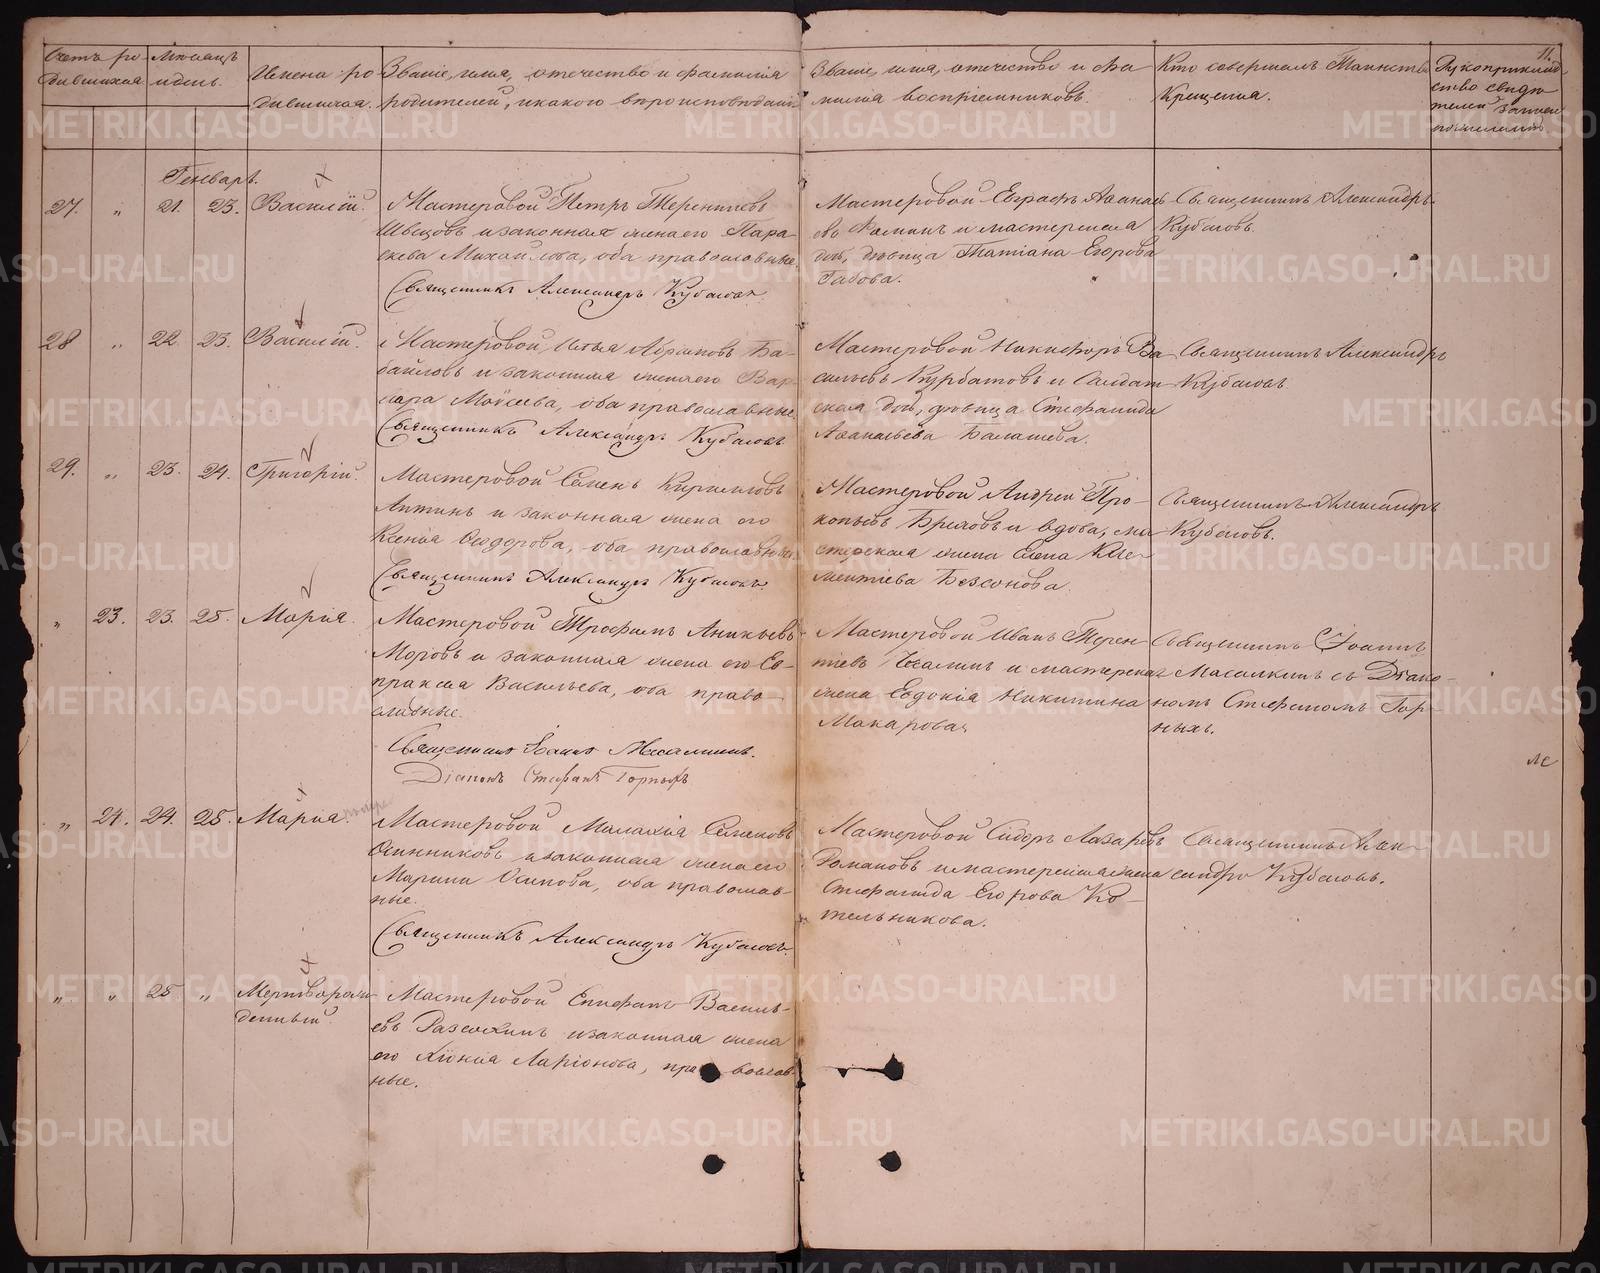 Счетъ ро-
дившихся.
Мѣсяцъ
и день.
Имена ро
дившихся.
Званіе, имя, отечество и фамилія
родителей, и какого вѣроисповѣданія
Званіе, имя, отечество и фа
милія воспріемниковъ.
Кто совершалъ Таинство
Крещенія.
11.
Рукоприклад
ство свидѣ
телей записи
по желанію
Генварь.
27. " 21. 23. Василій.
Мастеровой Петръ Терентьевъ
Швецовъ и законная жена его Пара-
скева Михайлова, оба православные.
Священникъ Александръ Кубасовъ
Мастеровой Евграфъ Аѳанась
евъ и мастерская
доч, дѣвица Татіана Егорова
Габова.
Священникъ Александръ
Кубасовъ.
28 " 22 23. Василій.
Мастеровой Абрамовъ Ба-
байловъ и законная жена его Вар-
вара Моисеева, оба православные
Священникъ Александръ Кубасовъ
Мастеровой Никифоръ Ва
сильевъ Курбатовъ и Солдат
ская доч, дѣвица Стефанида
Аѳанасьева Балашева.
Священникъ Александръ
Кубасовъ
29. " 23. 24. Григорій.
Мастеровой Семенъ Кириловъ
и законная жена его
Ксенія Ѳедорова, оба православные
Священникъ Александръ Кубасовъ.
Мастеровой Андрей Про-
копьевъ и вдова, ма
стерская жена Елена Кле-
ментіева Безсонова.
Священникъ Александръ
Кубасовъ.
" 23. 23. 25. Марія.
Мастеровой Трофимъ Аникьевъ
Моровъ и законная жена его Ев-
праксія Васильева, оба право-
славные.
Священникъ Іоаннъ
Діаконъ Стефанъ Горныхъ
Мастеровой Иванъ Терен-
тіевъ и мастерская
жена Евдокія Никитина
Макарова
Священникъ Іоаннъ
съ Діако-
номъ Стефаномъ Гор-
ныхъ.
" 24. 24. 25. Марія.
Мастеровой Малахія Семеновъ
Осинниковъ и законная жена его
Марина Осипова, оба православ-
ные.
Священникъ Александръ Кубасовъ.
Мастеровой Сидоръ Лазаревъ
Романовъ и мастерская жена
Стефанида Егорова Ко-
тельникова.
Священникъ Алек-
сандръ Кубасовъ.
" " 25 " Мертворож
денный.
Мастеровой Епифанъ Василь-
евъ и законная жена
его Ларіонова, православ-
ные.
METRIKI.GASO-URAL.RU